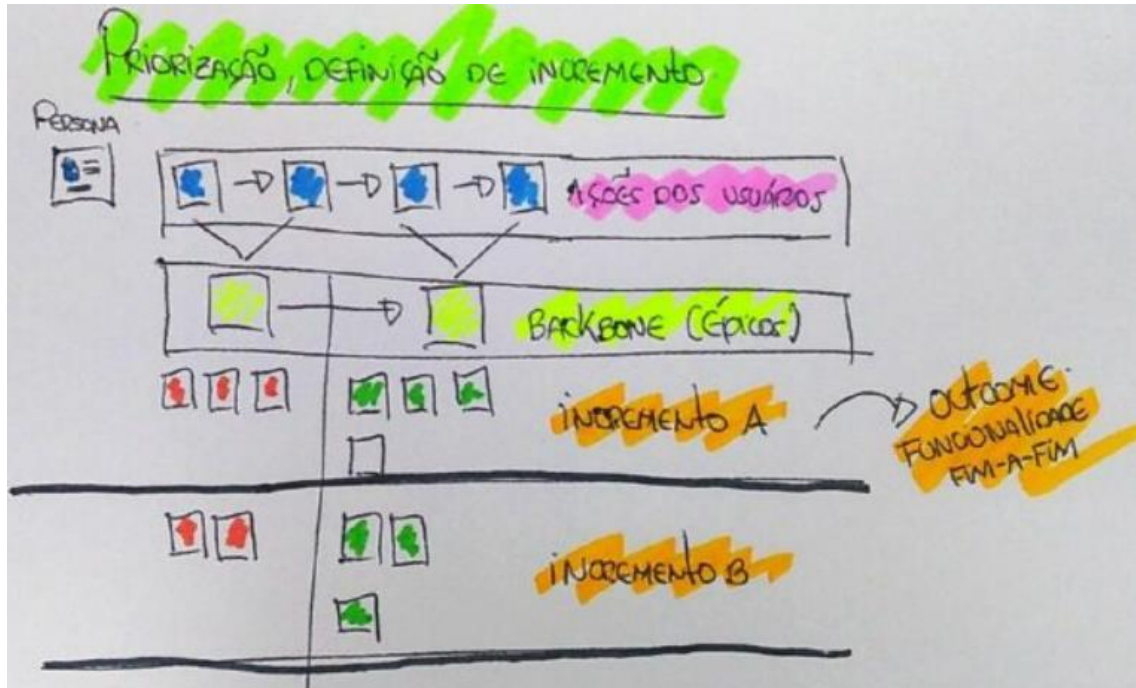 PRIORIZAÇÃO, DEFINIÇÃO DE INCREMENTO
PERSONA
AÇÕES DOS USUÁRIOS
BACKBONE (ÉPICOS)
INCREMENTO A
OUTCOME
FUNCIONALIDADE
FIM-A-FIM
INCREMENTO B